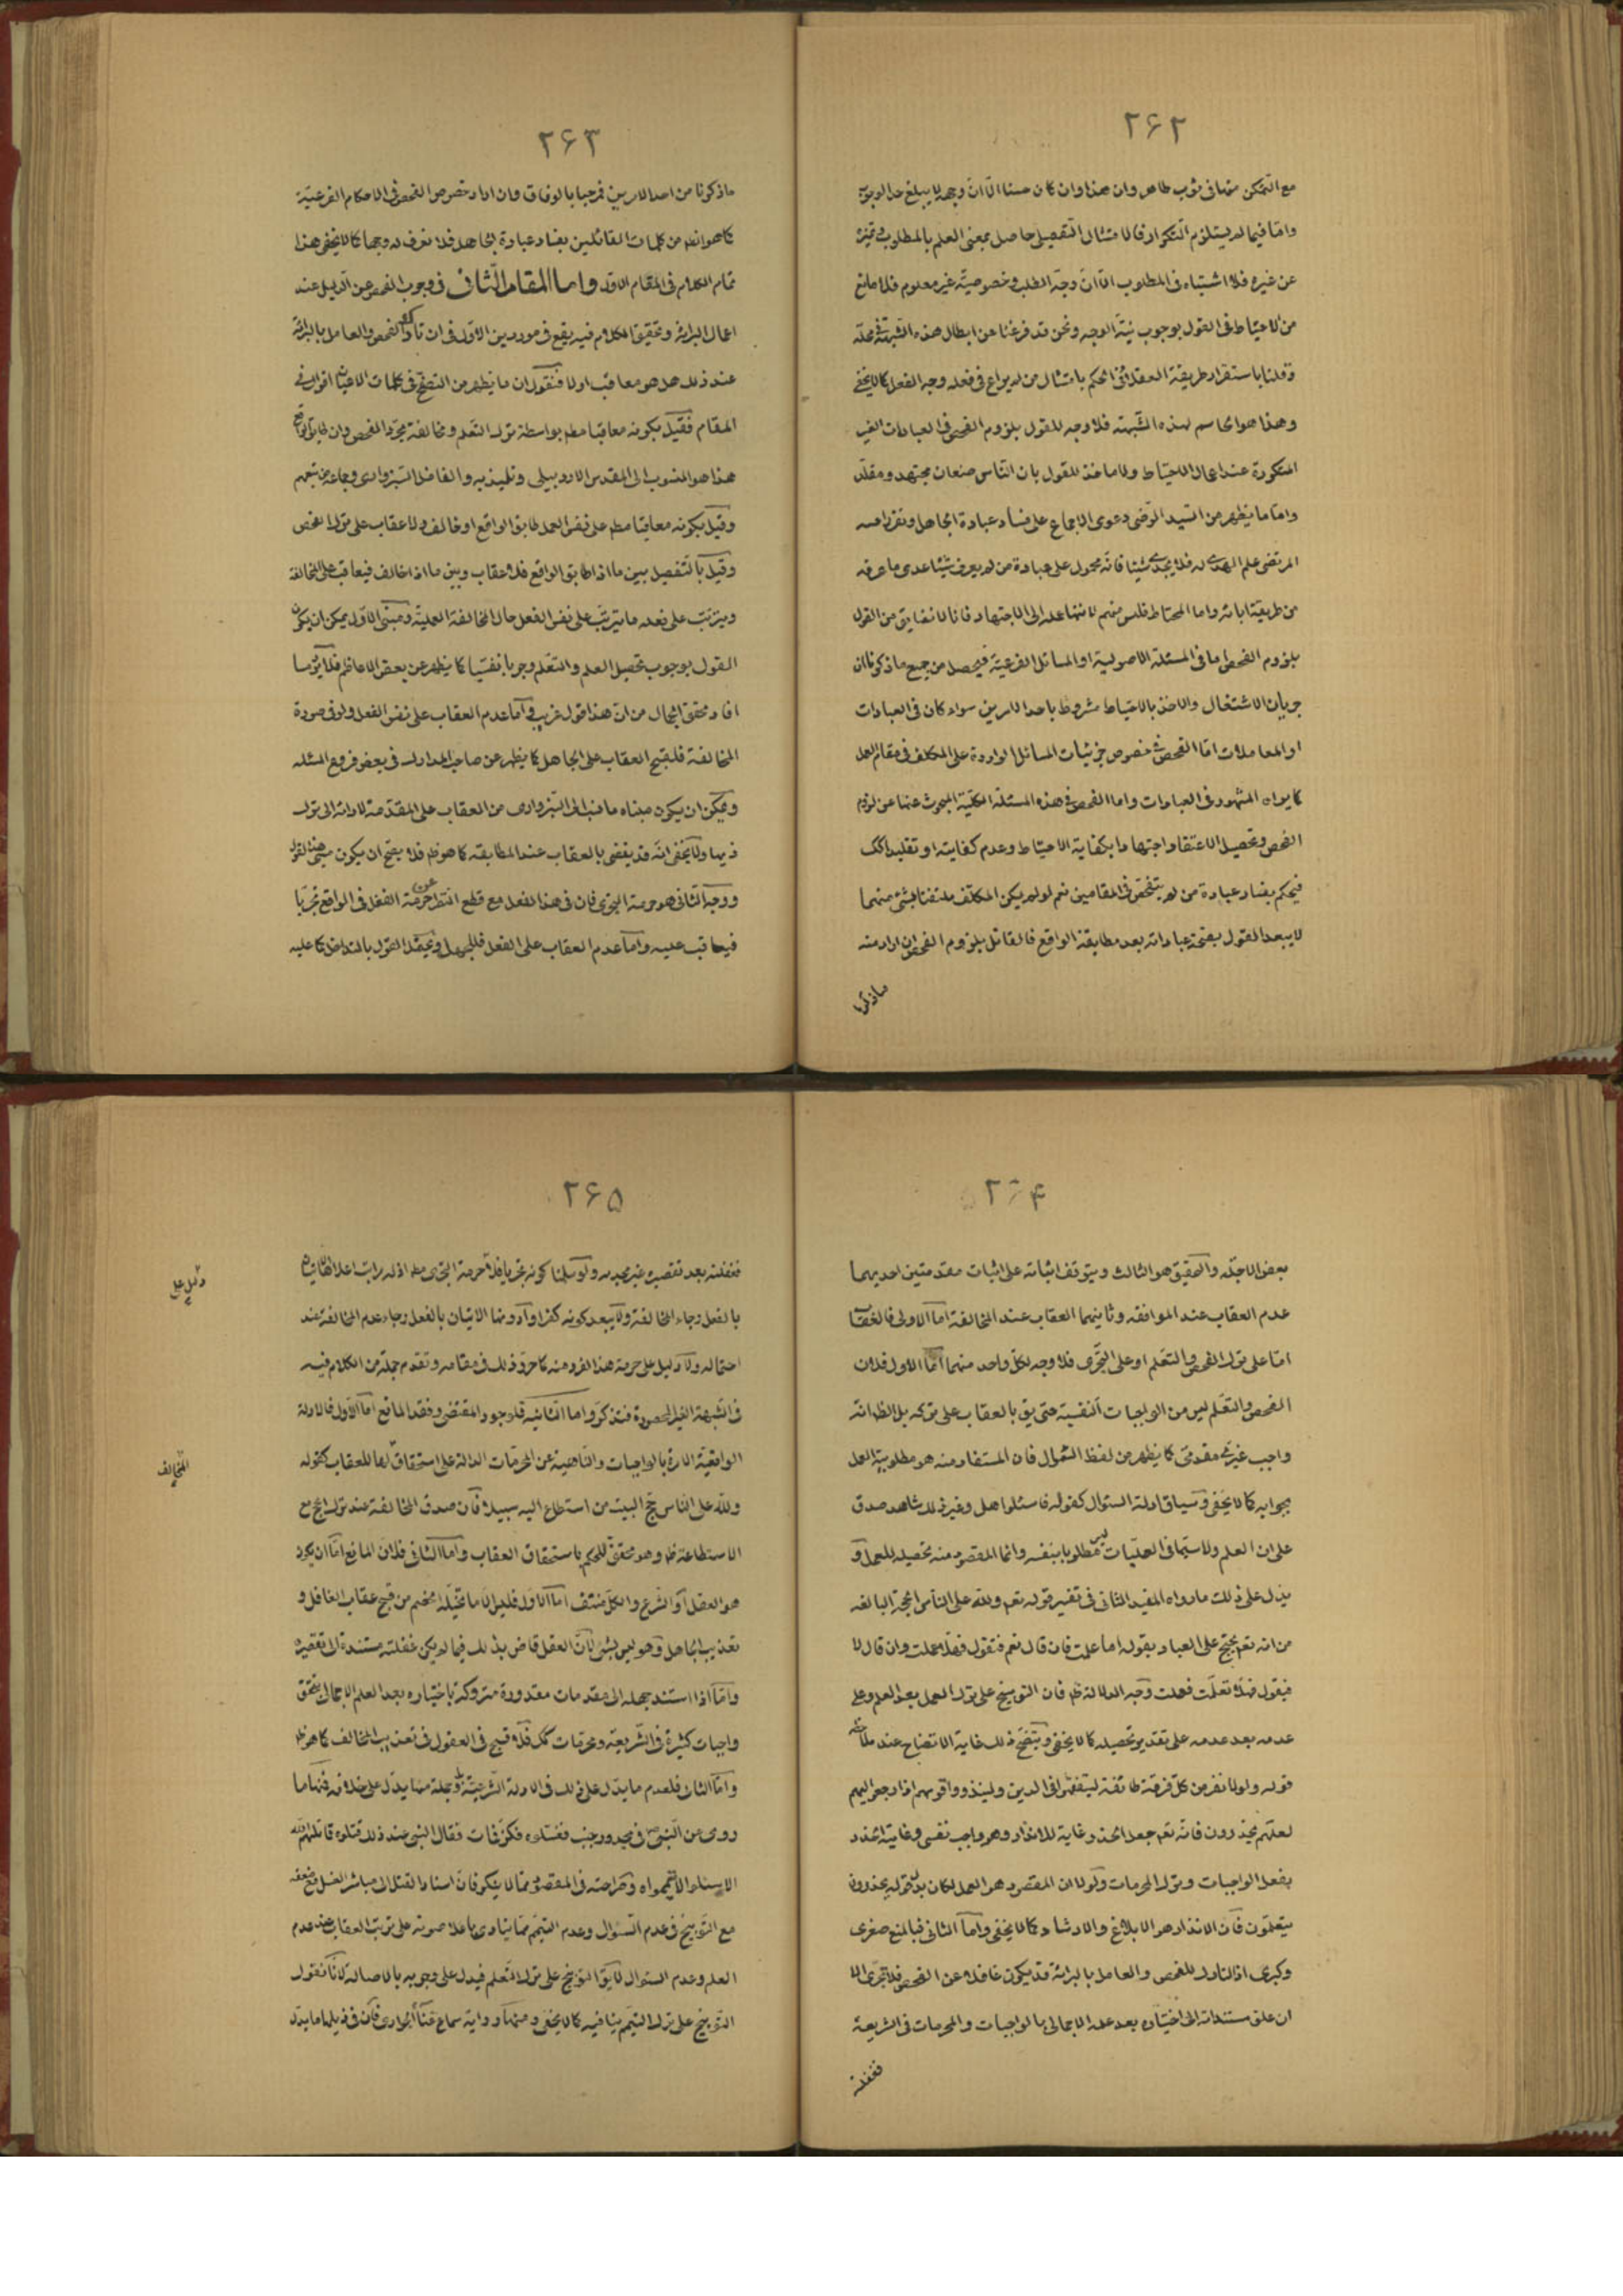 ۲۶۲
مع التمكن منها فى ثوب طاهر وان هذا وان كان حسنا الّا انّ وجهه لا يبلغ حد الوجوب
وامّا فيما لم يستلزم التكرار فالامتثال التفصيلى حاصل بمعنى العلم بالمطلوب وتميزه
عن غيره فلا اشتباه فى المطلوب الّا انّ وجه الطلب وخصوصيّته غير معلوم فلا مانع
من الاحتياط فى القول بوجوب نيّة الوجه ونحن قد فرغنا عن ابطال هذه الشبهة فى محلّه
وقلنا باستقرار طريقة العقلاء فى الحكم بامتثال من لم يراع فى فعله وجه الفعل كما لا يخفى
وهذا هو الحاسم لهذه الشبهة فلا وجه للقول بلزوم الفحص فى العبادات الغير
المتكررة عند اعمال الاحتياط ولا ماخذ للقول بان النّاس صنفان مجتهد ومقلّد
وامّا ما يظهر من السّيد الرّضى دعوى الاجماع على فساد عبادة الجاهل وتقرير اخيه
المرتضى علم الهدى له فلا يجدى شيئا فانّه محمول على عبادة من لم يعرف شيئا عدى ما عرفه
من طريقة ابائه واما المحتاط فليس منهم لانتهاء عمله الى الاجتهاد فانا لا نضايق من القول
بلزوم الفحص اما فى المسئلة الاصولية او المسائل الفرعيّة فيحصل من جميع ما ذكرنا ان
جريان الاشتغال والاخذ بالاحتياط مشروط باحد الامرين سواء كان فى العبادات
او المعاملات امّا الفحص فى خصوص جزئيات المسائل الواردة على المكلف فى مقام العمل
كما يراه المشهور فى العبادات واما الفحص فى هذه المسئلة الكليّة المبحوث عنها عن لزوم
الفحص وتحصيل الاعتقاد اجتهادا بكفاية الاحتياط وعدم كفايته او تقليدا كك
فيحكم بفساد عبادة من لم يتفحّص فى المقامين نعم لو لم يكن المكلّف ملتفتا بشئ منهما
لا يبعد القول بصحّة عباداته بعد مطابقة الواقع فالقائل بلزوم الفحص ان اراد منه
ما ذكرنا
۲۶۳
ما ذكرنا من احد الامرين فمرحبا بالوفاق وان اراد خصوص الفحص فى الاحكام الفرعيّة
كما هو الظاهر من كلمات القائلين بفساد عبادة الجاهل فلا نعرف له وجها كما لا يخفى هذا
تمام الكلام فى المقام الاوّل واما المقام الثّانى فى وجوب الفحص عن الدّليل عند
اعمال البرائة وتحقيق الكلام فيه يقع فى موردين الاوّل فى ان تارك الفحص والعامل بالبرائة
عند ذلك هل هو معاقب اولا فنقول ان ما يظهر من التصفّح فى كلمات الاعيان اقوال فى
المقام فقيل بكونه معاقبا مطم بواسطة ترك التعلم ومخالفة مجرّد الفحص وان طابق الواقع
هذا هو المنسوب الى المقدس الاردبيلى وتلميذيه والفاضل السّبزوارى وجماعة من تبعهم
وقيل بكونه معاقبا مطم على نفس العمل طابق الواقع او خالف ولا عقاب على ترك الفحص
وقيل بالتّفصيل بين ما اذا طابق الواقع فلا عقاب وبين ما اذا خالف فيعاقب على المخالفة
ويترتب على فعله ما يترتّب على نفس الفعل حال المخالفة العمليّة ومبنى الاوّل يمكن ان يكون
القول بوجوب تحصيل العلم والتعلّم وجوبا نفسيّا كما يظهر عن بعض الاعاظم فلا يؤسا
افاد محقق الجمال من انّ هذا قول غريب وامّا عدم العقاب على نفس الفعل ولو فى صورة
المخالفة فلقبح العقاب على الجاهل كما يظهر عن صاحب المدارك فى بعض فروع المسئله
ويمكن ان يكون مبناه ما نسب الى السّبزوارى من العقاب على المقدّمة لادائه الى ترك
ذيها ولا يخفى انّه قد يقضى بالعقاب عند المطابقه كما هو ظم فلا يصحّ ان يكون مبنى هذا القول
ووجه الثّانى هو حرمة التجرّى فان فى هذا الفعل مع قطع النّظر عن حرمة الفعل فى الواقع تجرّيا
فيعاقب عليه وامّا عدم العقاب على الفعل فللجهل ويحتمل القول بالتداخل كما عليه
۲۶۴
بعض الاجلّه والتحقيق هو الثالث ويتوقف اثباته على اثبات مقدمتين احديهما
عدم العقاب عند الموافقه وثانيهما العقاب عند المخالفة امّا الاولى فالعقاب
امّا على ترك الفحص والتعلم او على التجرّى فلا وجه لكلّ واحد منهما امّا الاول فلان
الفحص والتعلّم ليس من الواجبات النفسية حتى يق بالعقاب على تركه بل الظ انّه
واجب غيرىّ مقدمىّ كما يظهر من لفظ السّؤال فان المستفاد منه هو مطلوبية العمل
بجوابه كما لا يخفى وسياق ادلة السئوال كقوله فاسئلوا اهل وغير ذلك شاهد صدق
على ان العلم ولا سيّما فى العمليّات ليس مطلوبا بنفسه وانما المقصود منه تحصيله للعمل و
يدل على ذلك ما رواه المفيد الثانى فى تفسير قوله تعم ولله على النّاس الحجة البالغه
من انه تعم يحتجّ على العباد بقوله اما علمت فان قال نعم فنقول فهلّا عملت وان قال لا
فيقول فهلّا تعلّمت فعملت وجه الدلالة ظم فان التوبيخ على ترك العمل بعد العلم وعلى
عدمه بعد عدمه على تقدير تحصيله كما لا يخفى ويتضح ذلك غاية الاتضاح عند ملاحظة
قوله ولولا نفر من كلّ فرقة طائفة ليتفقّهوا فى الدين ولينذروا قومهم اذا رجعوا اليهم
لعلّهم يحذرون فانّه تعم جعل الحذر غاية للانذار وهو واجب نفسى وغاية الحذر
بفعل الواجبات وترك المحرمات ولو لا ان المقصود هو العمل لكان بدل قوله يحذرون
يتعلمون فان الانذار هو الابلاغ والارشاد كما لا يخفى وامّا الثانى فبالمنع صغرى
وكبرى اذ التارك للفحص والعامل بالبرائة قد يكون غافلا عن الفحص فلا تجرّى الا
ان غفلته مستندة الى اختياره بعد علمه الاجمالى بالواجبات والمحرمات فى الشريعة
فغفلته
۲۶۵
فغفلته بعد تقصيره غير مجديه ولو سلمنا كونه تجريا فلا حرمة للتجرى مطم اذ له مراتب اعلاها الاتيان
بالفعل رجاء المخالفة ولا يبعد كونه كفرا وادونها الاتيان بالفعل رجاء عدم المخالفة عند
احتماله ولا دليل على حرمة هذا الفرد منه كما حرّر ذلك فى مقامه وتقدم جملة من الكلام فيه
فى الشبهة الغير المحصورة فتذكر واما الثانيه فلوجود المقتضى وفقد المانع امّا الاوّل فالادلة
الواقعيّة الامرة بالواجبات والنّاهية عن المحرّمات الدالة على استحقاق لها للعقاب كقوله
ولله على النّاس حجّ البيت من استطاع اليه سبيلا فان صدق المخالفة عند ترك الحج مع
الاستطاعة ظم وهو محقق للحكم باستحقاق العقاب وامّا الثانى فلان المانع امّا ان يكون
هو العقل او الشرع والكل منتف امّا الاوّل فليس الّا ما تخيّله بعضهم من قبح عقاب الغافل و
تعذيب الجاهل وهو ليس بشئ لانّ العقل قاض بذلك فيما لم يكن غفلته مستندة الى تقصيره
وامّا اذا استند جهله الى مقدمات مقدورة متروكة باختياره بعد العلم الاجمالى بتحقق
واجبات كثيرة فى الشّريعة ومحرّمات كك فلا قبح فى العقول فى تعذيب المخالف كما هو ظم
وامّا الثانى فلعدم ما يدّل على ذلك فى الادلة الشّرعيّة وجملة منها يدّل على خلافه فمنها ما
روى عن النّبى ص فى مجدور جنب فغسلوه فكزّ فمات فقال النبى عند ذلك قتلوه قاتلهم الله
الا سئلوا الا تيمموه وصراحته فى المقصود ممّا لا ينكر فانّ اسناد القتل الى مباشر الغسل مع ضعفه
مع التّوبيخ فى عدم السّؤال وعدم التيمّم ممّا ينادى باعلا صوته على ترتب العقاب عند عدم
العلم وعدم السئوال لا يق التوبيخ على ترك التعلم فيدل على وجوبه بالاصالة لانّا نقول
التوبيخ على ترك التيمّم ينافيه كما لا يخفى ومنها رواية سماع غناء الجوارى فان فى ذيلها ما يدّل
دليل على
المخالف